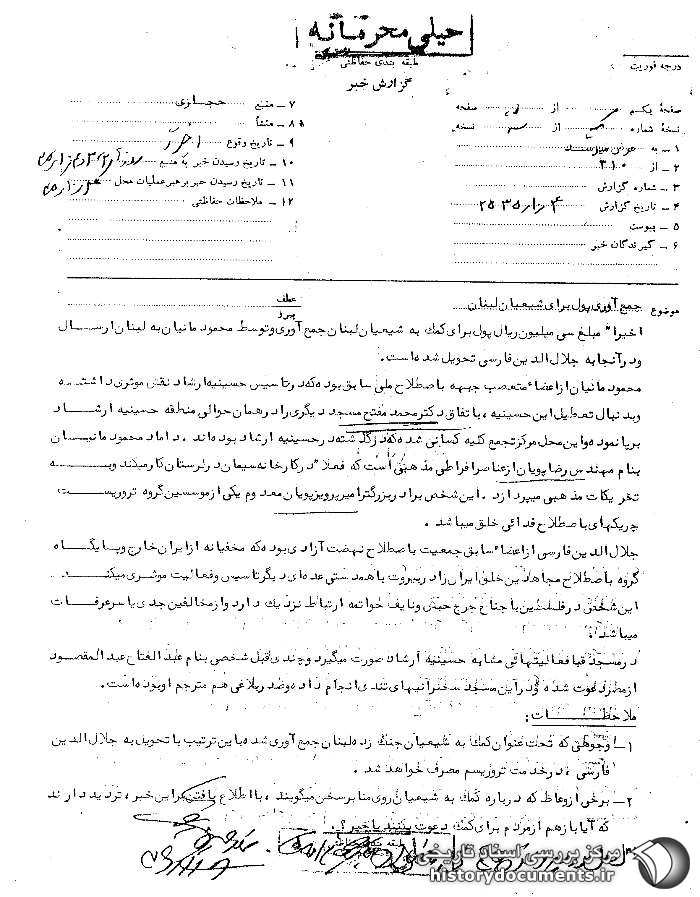 خیلی محرمانه
طبقه بندی حفاظتی
درجه فوریت
گزارش خبر
صفحه یکم از صفحه
نسخه شماره از نسخه
۱ – به
۲ – از ۳۱۰
۳ – شماره گزارش
۴ – تاریخ گزارش
۵ – پیوست
۶ – گیرندگان خبر
۷ – منبع حجازی
۸ – منشأ
۹ – تاریخ وقوع اخیراً
۱۰ – تاریخ رسیدن خبر به منبع
۱۱ – تاریخ رسیدن خبر برهبر عملیات محل
۱۲ – ملاحظات حفاظتی
موضوع جمع آوری پول برای شیعیان لبنان
عطف
پیرو
اخیراً مبلغ سی میلیون ریال پول برای کمک به شیعیان لبنان جمع آوری و توسط محمود مانیان به لبنان ارسال
و در آنجا به جلال الدین فارسی تحویل شده است.
محمود مانیان از اعضاء متعصب جبهه باصطلاح ملی سابق بوده که در تاسیس حسینیه ارشاد نقش موثری داشته
و بدنبال تعطیل این حسینیه، با تفاق دکتر محمد مفتح مسجد دیگری را در همان حوالی منطقه حسینیه ارشاد
برپا نموده و این محل مرکز تجمع کلیه کسانی شده که در گذشته در حسینیه ارشاد بوده اند. داماد محمود مانیان
بنام مهندس رضا پویان از عناصر افراطی مذهبی است که فعلاً در کارخانه سیمان در لرستان کار میکند و به
تحریکات مذهبی میپردازد. این شخص برادر بزرگتر امیر پرویز پویان معدوم یکی از موسسین گروه تروریست
چریکهای باصطلاح فدائی خلق میباشد.
جلال الدین فارسی از اعضاء سابق جمعیت باصطلاح نهضت آزادی بوده که مخفیانه از ایران خارج و پایگاه
گروه باصطلاح مجاهدین خلق ایران را در بیروت با همدستی عده ای دیگر تاسیس و فعالیت موثری میکند.
این شخص در فلسطین با جناح جرج حبش و نایف حواتمه ارتباط نزدیک دارد و از مخالفین جدی یاسر عرفات
میباشد.
در مسجد قبا فعالیتهائی مشابه حسینیه ارشاد صورت میگیرد و چندی قبل شخصی بنام عبدالفتاح عبدالمقصود
از مصر دعوت شده و در این مسجد سخنرانیهای تندی انجام داده و صدر بلاغی هم مترجم او بوده است.
ملاحظات:
۱– وجوهی که تحت عنوان کمک به شیعیان جنگ زده لبنان جمع آوری شده با این ترتیب با تحویل به جلال الدین
فارسی، در خدمت تروریسم مصرف خواهد شد.
۲– برخی از وعاظ که درباره کمک به شیعیان روی منابر سخن میگویند، با اطلاع یافتن از این خبر، تردید دارند
که آیا باز هم از مردم برای کمک دعوت بکنند یا خیر؟.
مرکز بررسی اسناد تاریخی
historydocuments.ir